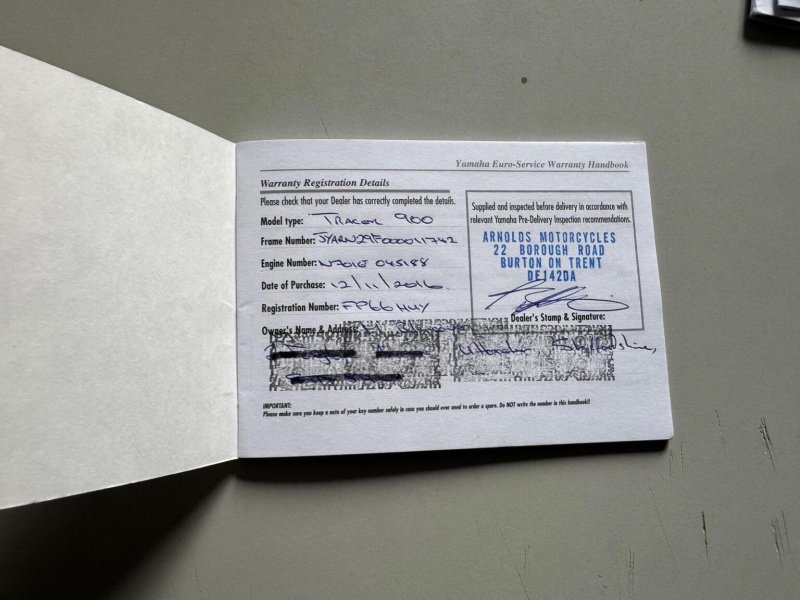 Yamaha Euro-Service Warranty Handbook
Warranty Registration Details
Please check that your Dealer has correctly completed the details.
Model type: TRACER 900
Frame Number: JYARN29F000011742
Engine Number: N701E 045188
Date of Purchase: 12/11/2016.
Registration Number: FP66 HUY
Owner's Name & Address:
Staffordshire,
Supplied and inspected before delivery in accordance with
relevant Yamaha Pre-Delivery Inspection recommendations.
ARNOLDS MOTORCYCLES
22 BOROUGH ROAD
BURTON ON TRENT
DE142DA
Dealer's Stamp & Signature:
IMPORTANT:
Please make sure you keep a note of your key number safely in case you should ever need to order a spare. Do NOT write the number in this handbook!!